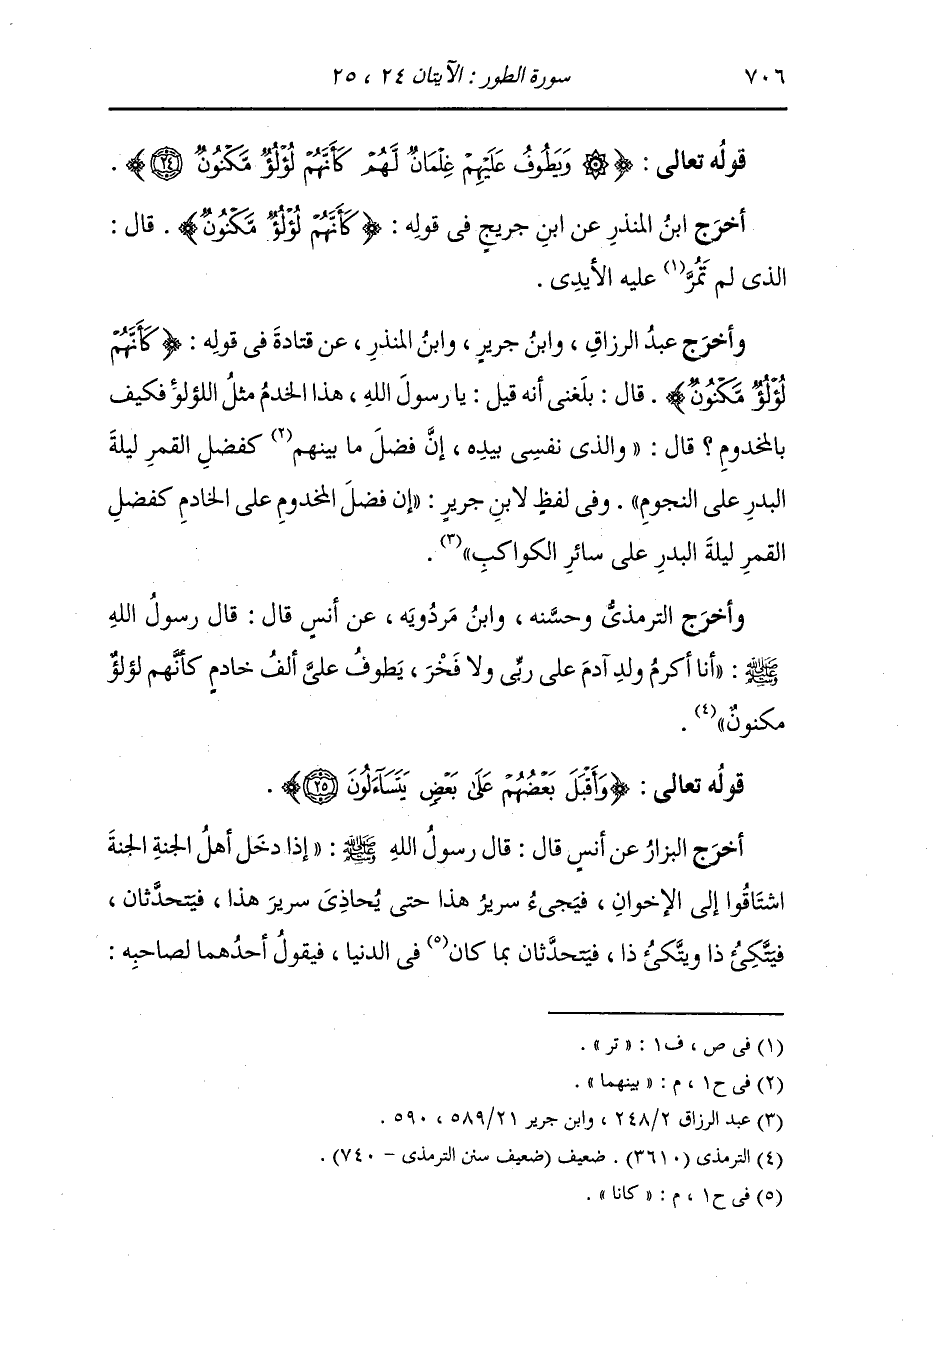 ٧٠٦ سورة الطور : الآيتان ٢٤ ، ٢٥
قولُه تعالى : ﴿ ۞ وَيَطُوفُ عَلَيْهِمْ غِلْمَانٌ لَّهُمْ كَأَنَّهُمْ لُؤْلُؤٌ مَّكْنُونٌ ٢٤ ﴾ .
أخرَج ابنُ المنذرِ عن ابنِ جريجٍ فى قولِه : ﴿ كَأَنَّهُمْ لُؤْلُؤٌ مَّكْنُونٌ ﴾ . قال :
الذى لم تَمُرَّ(١) عليه الأيدِى .
وأخرَج عبدُ الرزاقِ ، وابنُ جريرٍ ، وابنُ المنذرِ ، عن قتادةَ فى قولِه : ﴿ كَأَنَّهُمْ
لُؤْلُؤٌ مَّكْنُونٌ ﴾ . قال : بلَغنى أنه قيل : يا رسولَ اللهِ ، هذا الخدمُ مثلُ اللؤلؤِ فكيف
بالمخدومِ ؟ قال : « والذى نفسِى بيدِه ، إنَّ فضلَ ما بينهم(٢) كفضلِ القمرِ ليلةَ
البدرِ على النجومِ» . وفى لفظٍ لابنِ جريرٍ : «إن فضلَ المخدومِ على الخادمِ كفضلِ
القمرِ ليلةَ البدرِ على سائرِ الكواكبِ»(٣) .
وأخرَج الترمذىُّ وحسَّنه ، وابنُ مَردُويَه ، عن أنسٍ قال : قال رسولُ اللهِ
ﷺ : «أنا أكرمُ ولدِ آدمَ على ربِّى ولا فَخْرَ ، يَطوفُ علىَّ ألفُ خادمٍ كأنَّهم لؤلؤٌ
مكنونٌ»(٤) .
قولُه تعالى : ﴿ وَأَقْبَلَ بَعْضُهُمْ عَلَىٰ بَعْضٍ يَتَسَآءَلُونَ ٢٥ ﴾ .
أخرَج البزارُ عن أنسٍ قال : قال رسولُ اللهِ ﷺ : « إذا دخَل أهلُ الجنةِ الجنةَ
اشتَاقُوا إلى الإخوانِ ، فيَجىءُ سريرُ هذا حتى يُحاذِىَ سريرَ هذا ، فيَتحدَّثان ،
فيَتَّكِئُ ذا ويتَّكئُ ذا ، فيَتحدَّثان بما كان(٥) فى الدنيا ، فيقولُ أحدُهما لصاحبِه :
(١) فى ص ، ف١ : « تر » .
(٢) فى ح١ ، م : « بينهما » .
(٣) عبد الرزاق ٢٤٨/٢ ، وابن جرير ٥٨٩/٢١ ، ٥٩٠ .
(٤) الترمذى (٣٦١٠) . ضعيف (ضعيف سنن الترمذى – ٧٤٠) .
(٥) فى ح١ ، م : « كانا » .